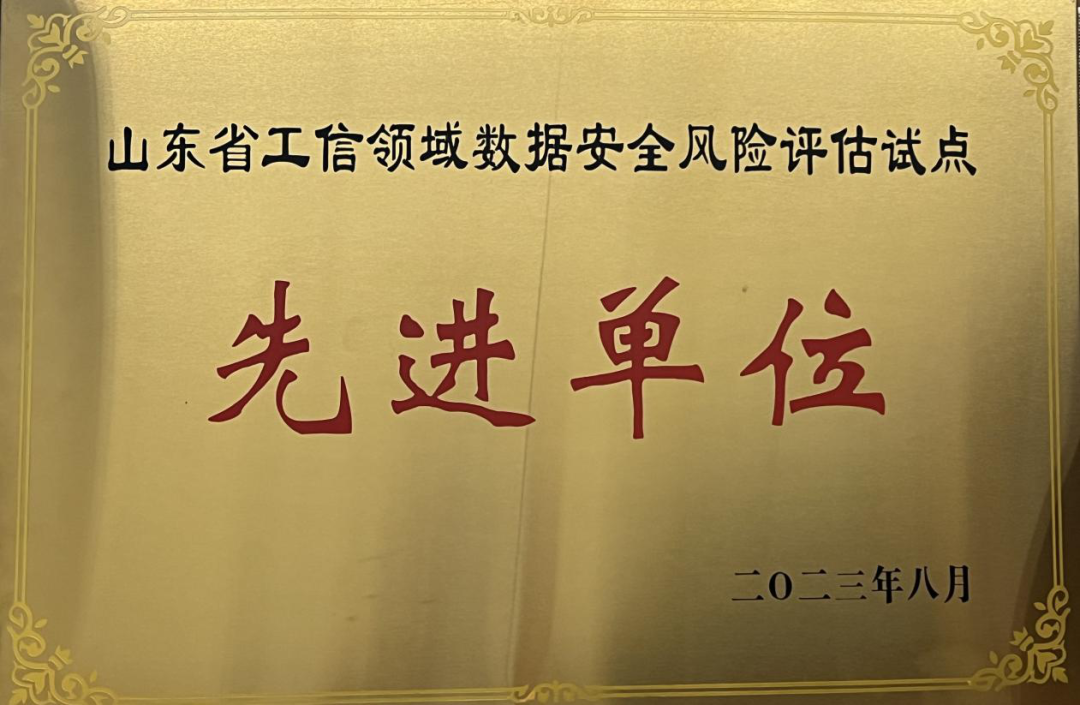 山东省工信领域数据安全风险评估试点
先进单位
二〇二三年八月